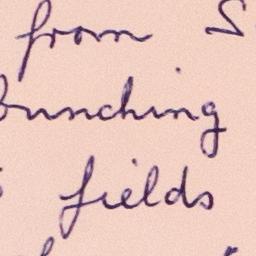 from
bunching
fields